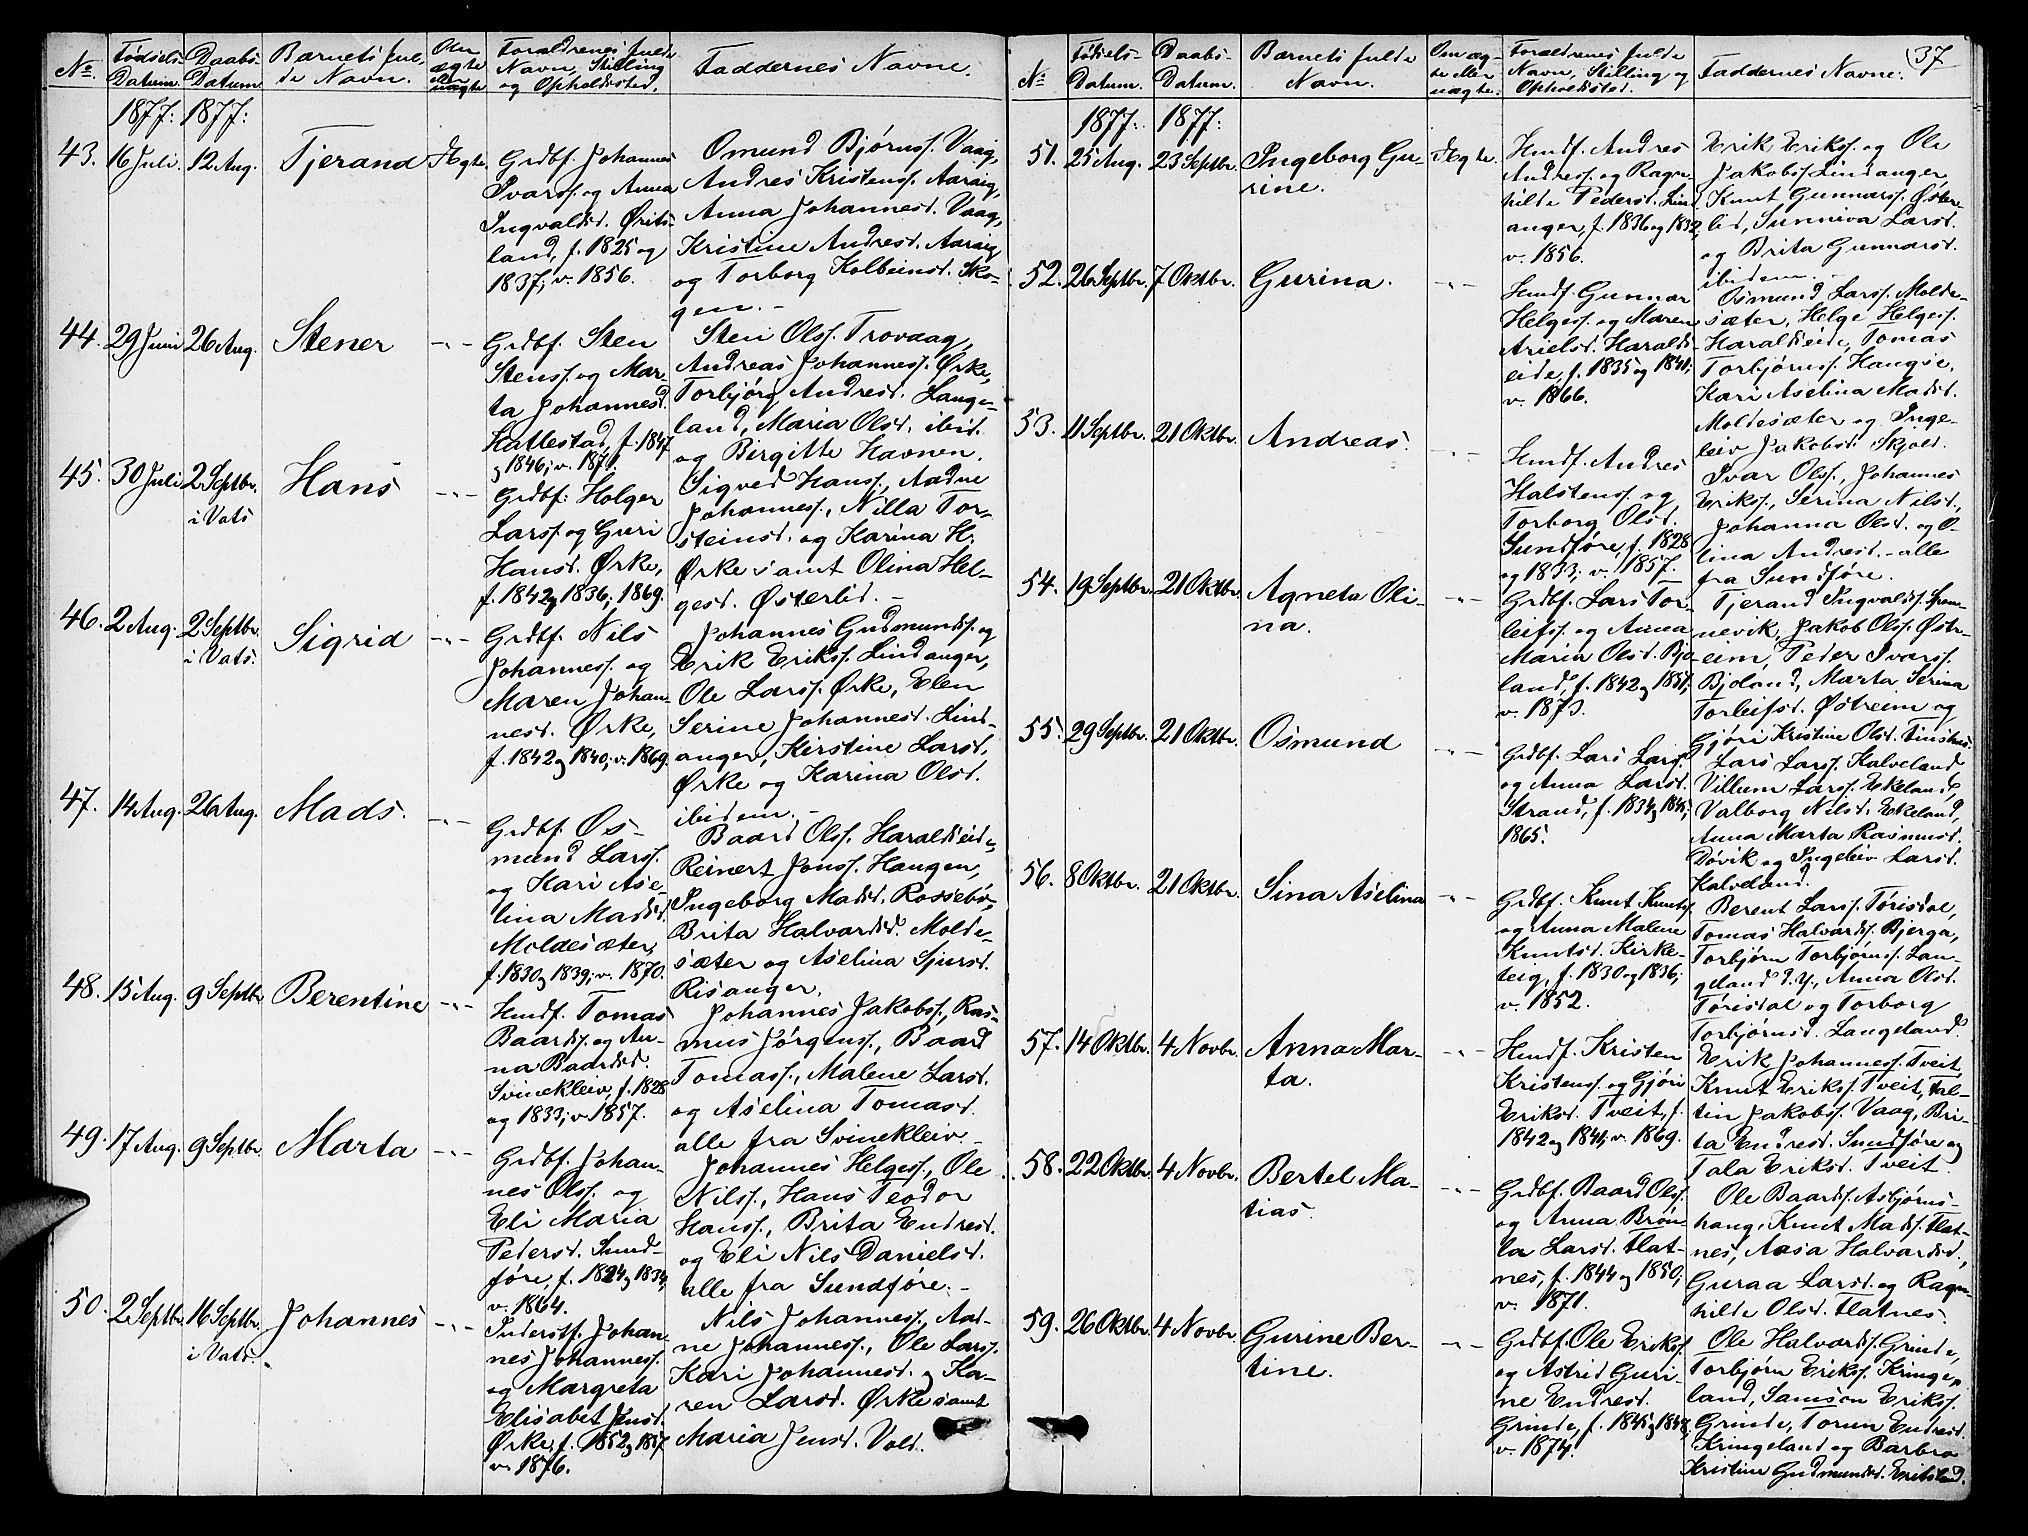 No.
Fødsels-
Datum.
Daabs-
Datum.
Barnets ful-
de Navn.
Om
ægte
eller
uægte
Forældrenes fulde
Navn, Stilling
og Opholdssted.
Faddernes Navne.
1877: 1877:
43. 16 Juli. 12 Aug. Tjerand Ægte.
Grdbf. Johannes
Ivarss. og Anna
Ingvaldsd. Ørits-
land, f. 1825 og
1837; v. 1856.
Omund Bjørnss. Vaag,
Andres Kristenss. Aaraig,
Anna Johannesd. Vaag,
Kristine Andresd. Aaraig
og Torborg Kolbeinsd. Sko-
gen. -
44. 29 Juni 26 Aug. Stener -"-
Grdbf. Sten
Stenss. og Mar-
ta Johannesd.
Hatlestad, f. 1847
og 1846; v. 1871.
Sten Olss. Trovaag,
Andreas Johanness. Ørke,
Torbjørg Andresd. Lange-
land, Maria Olsd. ibid.
og Birgitte Havnen.
45. 30 Juli 2 Septbr.
i Vats
Hans -"-
Grdbf: Holger
Larss. og Guri
Hansd. Ørke,
f. 1842 og 1836; 1869.
Sigved Hanss., Aadne
Johanness., Nilla Tor-
steinsd. og Karina H.
Ørke samt Olina Hel-
gesd. Østerlid. -
46. 2 Aug. 2 Septbr.
i Vats.
Sigrid -"-
Grdbf. Nils
Johanness. og
Maren Johan-
nesd. Ørke,
f. 1842 og 1840; v. 1869.
Johannes Gudmundss. og
Erik Erikss. Lindanger,
Ole Larss. Ørke, Elen
Serine Johannesd. Lind-
anger, Kirstine Larsd.
Ørke og Karina Olsd.
ibidem. -
47. 14 Aug. 26 Aug. Mads. -"-
Grdbf. Os-
mund Larss.
og Kari Ase-
lina Madsd.
Moldesæter,
f. 1830 og 1839; v. 1870.
Baard Olss. Haraldseide,
Reinert Jonss. Haugen,
Ingeborg Madsd. Rossebø,
Brita Halvardsd. Molde-
sæter og Aselina Sjursd.
Risanger.
48. 15 Aug. 9 Septbr Berentine -"-
Hmdf. Tomas
Baardss. og An-
na Baardsd.
Svinekleiv, f. 1828
og 1833; v. 1857.
Johannes Jakobss., Ras-
mus Jørgenss., Baard
Tomass., Malene Larsd.
og Aselina Tomasd.
alle fra Svinekleiv. -
49. 17 Aug. 9 Septbr. Marta -"-
Grdbf. Johan-
nes Olss. og
Eli Maria
Pedersd. Sund-
føre, f. 1824 og 1834,
v. 1864.
Johannes Helgess., Ole
Nilss., Hans Teodor
Hanss., Brita Endresd.
og Eli Nils Danielsd.
alle fra Sundføre. -
50. 2 Septbr. 16 Septbr.
i Vats. -
Johannes -"-
Inderstf. Johan-
nes Johanness.
og Margreta
Elisabet Jensd.
Ørke, f. 1852 og 1857
v. 1876.
Nils Johanness., Aad-
ne Johanness., Ole Larss.
Kari Johannesd. og Ka-
ren Larsd. Ørke samt
Maria Jensd. Vold.
37
No
Fødsels-
Datum.
Daabs-
Datum.
Barnets fulde
Navn.
Om æg-
te eller
uægte.
Forældrenes fulde
Navn, Stilling og
Opholdssted.
Faddernes Navne.
1877: 1877:
51. 25 Aug. 23 Septbr. Ingeborg Gu-
rine.
Ægte.
Hmdf. Andres
Andress. og Ragn-
hilde Pedersd. Lind-
anger, f. 1836 og 1832,
v. 1856.
Erik Erikss. og Ole
Jakobss. Lindanger,
Knut Gunnarss. Øster-
lid, Sunniva Larsd.
og Brita Gunnarsd.
ibidem. -
52. 26 Septbr. 7 Oktbr. Gurina. -"-
Hmdf. Gunnar
Helgess. og Maren
Arielsd. Haralds-
eide, f. 1835 og 1841;
v. 1866.
Osmund Larss. Molde-
sæter, Helge Helgess.
Haraldseide, Tomas
Torbjørnss. Haugse,
Kari Aselina Madsd.
Moldesæter og Inge-
leiv Jakobsd. Skjold.
53. 11 Septbr. 21 Oktbr. Andreas. -"-
Hmdf. Andres
Halstenss. og
Torborg Olsd.
Sundføre, f. 1828
og 1833; v. 1857.
Ivar Olss., Johannes
Erikss., Serina Nilsd.,
Johanna Olsd. og O-
lina Andresd. - alle
fra Sundføre.
54. 19 Septbr. 21 Oktbr. Agneta Oli-
na.
-"-
Grdbf. Lars Tor-
leifss. og Anna
Maria Olsd. Bjo-
land, f. 1842 og 1851;
v. 1873.
Tjerand Ingvaldss. Spon-
nevik, Jakob Olss. Østr-
eim, Peder Ivarss.
Bjoland, Marta Serina
Torleifsd. Østreim og
Gjøri Kristine Olsd. Tinshus.
55. 29 Septbr. 21 Oktbr. Osmund -"-
Grdbf. Lars Larss.
og Anna Larsd.
Strand, f. 1834 og 1845;
1865.
Lars Larss. Kalveland
Villum Larss. Ekeland,
Valborg Nilsd. Ekeland,
Anna Marta Rasmusd.
Døvik og Ingeleiv Larsd.
Kalveland.
56. 8 Oktbr. 21 Oktbr. Sina Aselina -"-
Grdbf. Knut Knutss.
og Anna Malene
Knutsd. Kirke-
teig, f. 1830 og 1836;
v. 1852.
Berent Larss. Tørisdal,
Tomas Halvardss. Bjerga,
Torbjørn Torbjørnss. Lan-
geland d. Y., Anna Olsd.
Tørisdal og Torborg
Torbjørnsd. Langeland.
57. 14 Oktbr. 4 Novbr. Anna Mar-
ta.
-"-
Hmdf. Kristen
Kristenss. og Gjøri
Eriksd. Tveit, f.
1842 og 1841; v. 1869.
Erik Johanness. Tveit,
Knut Erikss. Tveit, Fal-
tin Jakobss. Vaag, Bri-
ta Endresd. Sundføre og
Tala Eriksd. Tveit.
58. 22 Oktbr. 4 Novbr. Bertel Ma-
tias.
-"-
Grdbf. Baard Olss.
og Anna Brøn-
la Larsd. Flat-
nes, f. 1844 og 1850,
v. 1871.
Ole Baardss. Asbjørns-
haug, Knut Madss. Flat-
nes, Aasa Halvardsd.,
Guraa Larsd. og Ragn-
hilde Olsd. Flatnes.
59. 26 Oktbr. 4 Novbr. Gurine Ber-
tine.
-"-
Grdbf. Ole Erikss.
og Astrid Guri-
ne Endresd.
Grinde, f. 1845 og 1847,
v. 1874.
Ole Halvardss. Grinde,
Torbjørn Erikss. Kringe-
land, Samson Erikss.
Grinde, Torun Endresd.
Kringeland og Barbro
Kristine Gudmundsd. Eritsland.